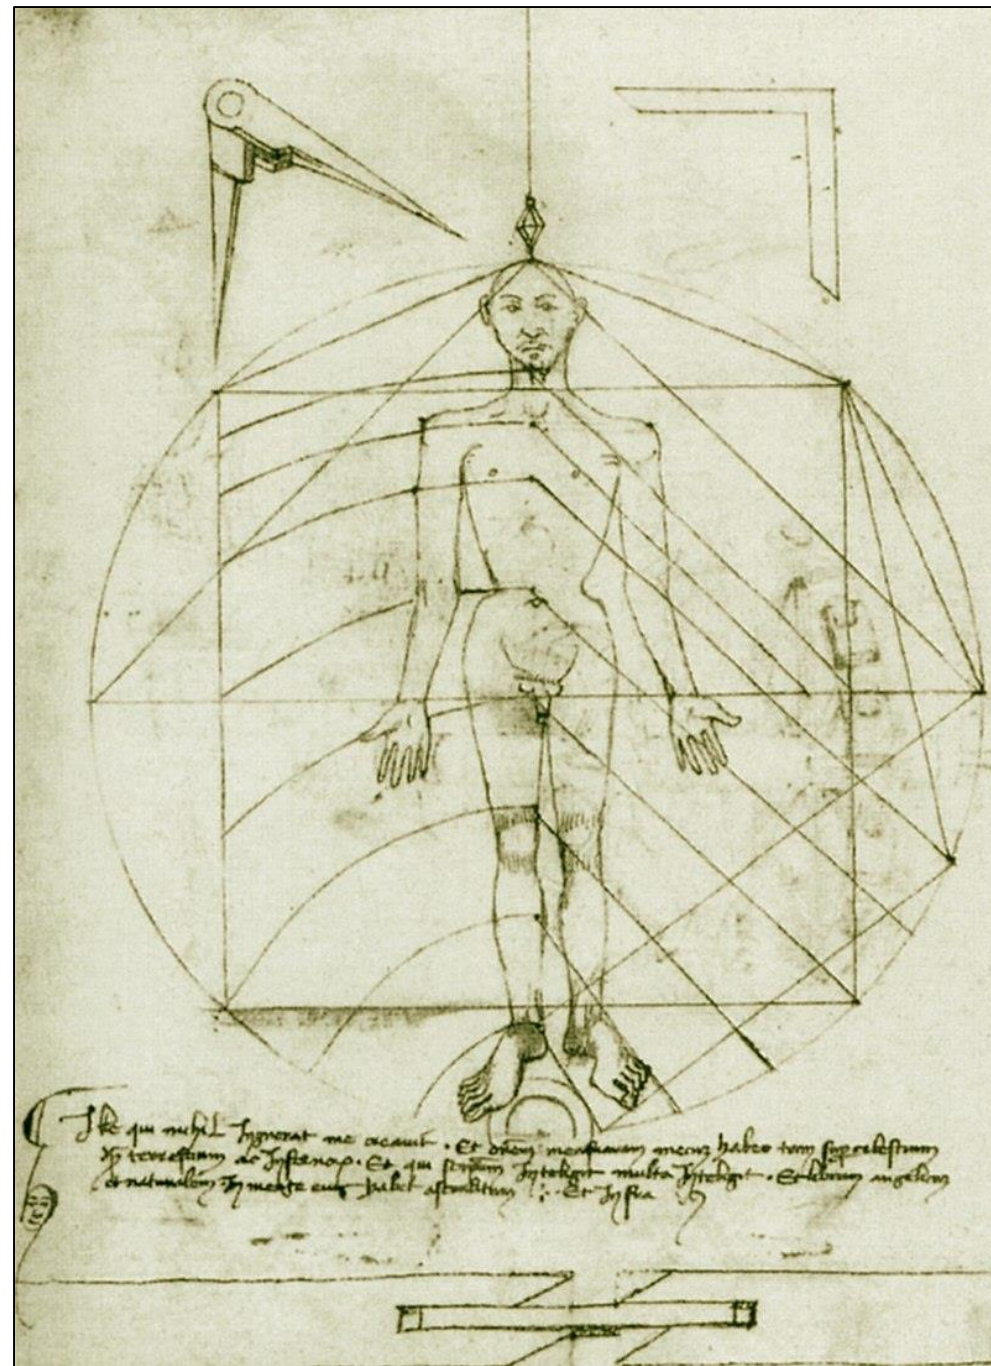 Ille qui nichil Ignorat me creavit . Et om̄em mensuram mecuz habeo tam supcelestium
terrestrium ac Infernor . Et qui seipsum Intelegit multa Intelegit . Et librum angelorum
et naturalem In mente eius habet absconditum . Et Infra